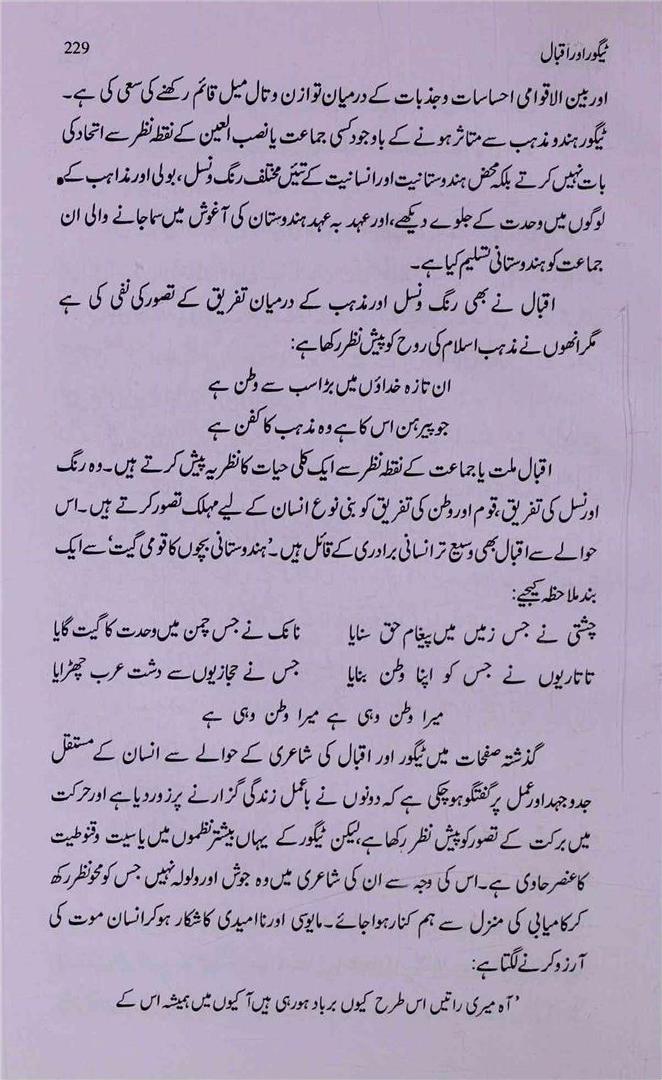 ٹیگور اور اقبال 229
اور بین الاقوامی احساسات و جذبات کے درمیان توازن و تال میل قائم رکھنے کی سعی کی ہے۔
ٹیگور ہندو مذہب سے متاثر ہونے کے باوجود کسی جماعت یا نصب العین کے نقطہ نظر سے اتحاد کی
بات نہیں کرتے بلکہ محض ہندوستانیت اور انسانیت کے تئیں مختلف رنگ و نسل، بولی اور مذاہب کے
لوگوں میں وحدت کے جلوے دیکھے، اور عہد بہ عہد ہندوستان کی آغوش میں سما جانے والی ان
جماعت کو ہندوستانی تسلیم کیا ہے۔
اقبال نے بھی رنگ و نسل اور مذہب کے درمیان تفریق کے تصور کی نفی کی ہے
مگر انھوں نے مذہب اسلام کی روح کو پیش نظر رکھا ہے:
ان تازہ خداؤں میں بڑا سب سے وطن ہے
جو پیرہن اس کا ہے وہ مذہب کا کفن ہے
اقبال ملت یا جماعت کے نقطہ نظر سے ایک کلی حیات کا نظریہ پیش کرتے ہیں۔ وہ رنگ
اور نسل کی تفریق، قوم اور وطن کی تفریق کو بنی نوع انسان کے لیے مہلک تصور کرتے ہیں۔ اس
حوالے سے اقبال بھی وسیع تر انسانی برادری کے قائل ہیں۔ 'ہندوستانی بچوں کا قومی گیت' سے ایک
بند ملاحظہ کیجیے:
چشتی نے جس زمیں میں پیغام حق سنایا نانک نے جس چمن میں وحدت کا گیت گایا
تاتاریوں نے جس کو اپنا وطن بنایا جس نے حجازیوں سے دشت عرب چھڑایا
میرا وطن وہی ہے میرا وطن وہی ہے
گذشتہ صفحات میں ٹیگور اور اقبال کی شاعری کے حوالے سے انسان کے مستقل
جدوجہد اور عمل پر گفتگو ہو چکی ہے کہ دونوں نے باعمل زندگی گزارنے پر زور دیا ہے اور حرکت
میں برکت کے تصور کو پیش نظر رکھا ہے، لیکن ٹیگور کے یہاں بیشتر نظموں میں یاسیت و قنوطیت
کا عنصر حاوی ہے۔ اس کی وجہ سے ان کی شاعری میں وہ جوش اور ولولہ نہیں جس کو محو نظر رکھ
کر کامیابی کی منزل سے ہم کنار ہوا جائے۔ مایوسی اور ناامیدی کا شکار ہو کر انسان موت کی
آرزو کرنے لگتا ہے:
'آہ میری راتیں اس طرح کیوں برباد ہو رہی ہیں آ کیوں میں ہمیشہ اس کے